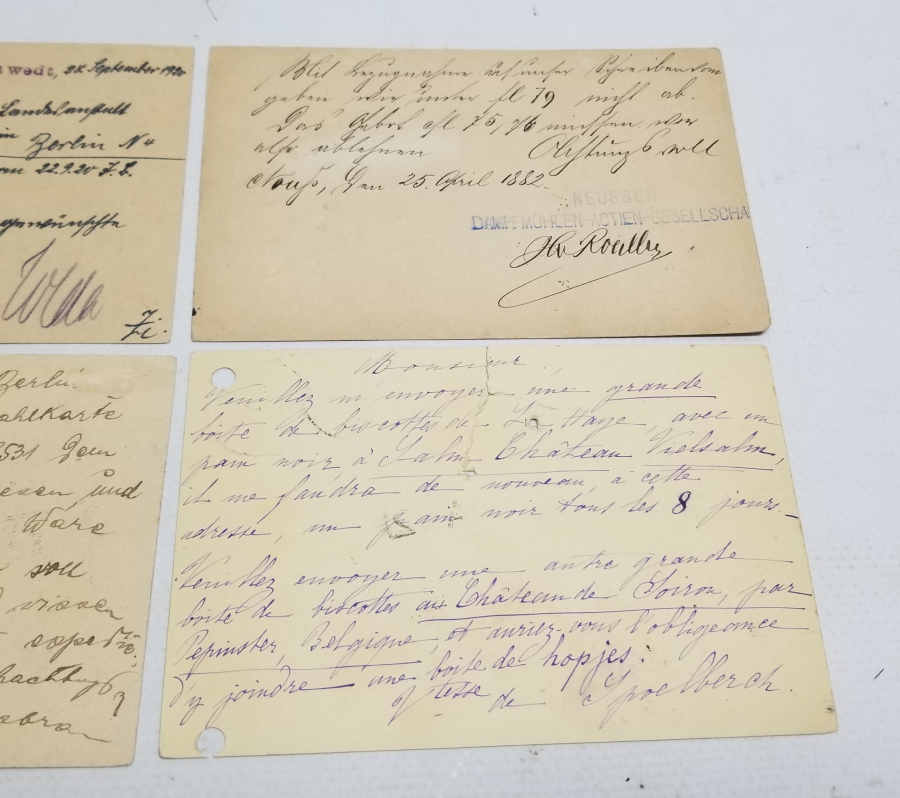 wedt, 28. September 1920
Landesanstalt
in Berlin N 4
22.9.20 J.
gewünschte
Mit Bezugnahme auf unser Schreiben vom
geben wir unter fl 79 nicht ab.
Das Gebot fl 75, 76 müssen wir
also ablehnen Achtungsvoll
Neuß, den 25. April 1882.
NEUSSER
DAMPFMÜHLEN-ACTIEN-GESELLSCHA
Berlin
ahlkarte
3531 dem
und
Ware
soll
Monsieur
Veuillez m'envoyer une grande
boîte de biscottes de La Haye, avec un
pain noir, à Salm Château Vielsalm,
il me faudra de nouveau, à cette
adresse, un pain noir tous les 8 jours.
Veuillez envoyer une autre grande
boîte de biscottes au Château de Soiron, par
Pepinster, Belgique, et auriez-vous l'obligeance
d'y joindre une boîte de hopjes.
Vtesse de Spoelberch.